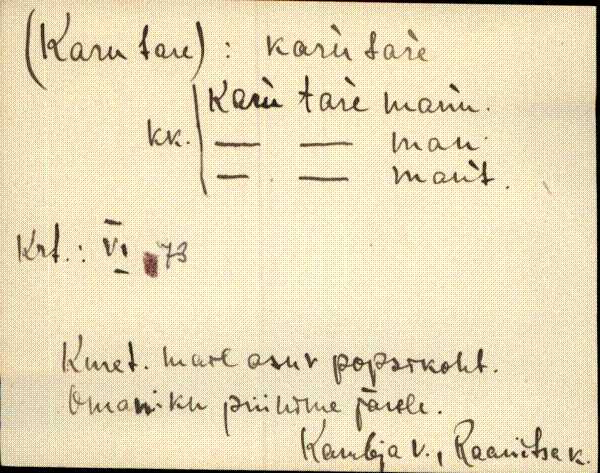 (Karu tare) : karu̇ taŕe
kk. Karu̇ taŕe mańu.
— — man
— — mańt.
Krt.: VI 73
Kmet. maal asuv popsikoht.
Omaniku priinime järele.
Kambja v., Raanitsa k.